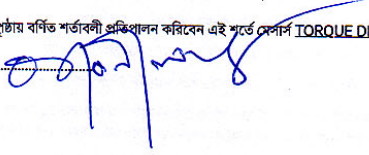 ষ্ঠায় বর্ণিত শর্তাবলী প্রতিপালন করিবেন এই শর্তে মেসার্স TORQUE DE